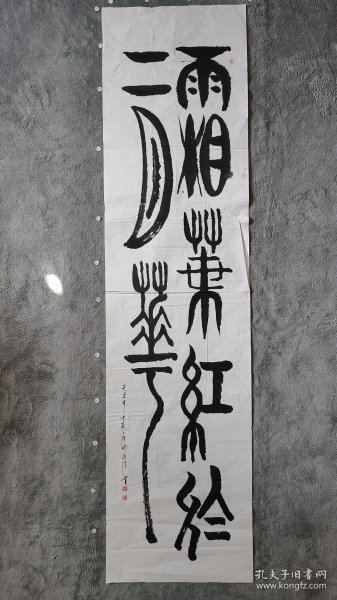 霜葉紅於
二月華
孔夫子旧书网
www.kongfz.com